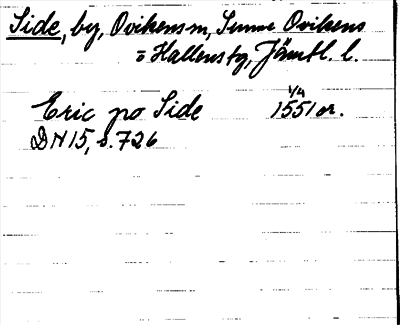 Side, by, Ovikens sn, Sunne Ovikens
o Hallens tg, Jämtl. l.
Eric po Side 1/4 1551 or.
DN 15, s. 726